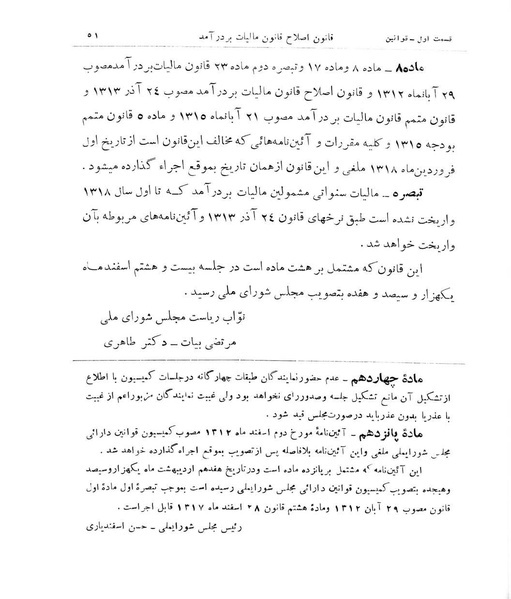 قسمت اول ـ قوانین
قانون اصلاح قانون مالیات بر درآمد
۵۱
ماده۸ ـ ماده ۸ وماده ۱۷ وتبصره دوم ماده ۲۳ قانون مالیات‌بردرآمدمصوب
۲۹ آبانماه ۱۳۱۲ و قانون اصلاح قانون مالیات بردرآمد مصوب ۲۴ آذر ۱۳۱۳ و
قانون متمم قانون مالیات بردرآمد مصوب ۲۱ آبانماه ۱۳۱۵ و ماده ۵ قانون متمم
بودجه ۱۳۱۵ و کلیه مقررات و آئین‌نامه‌هائی‌که مخالف این‌قانون است ازتاریخ اول
فروردین‌ماه ۱۳۱۸ ملغی و این قانون ازهمان تاریخ بموقع اجراء گذارده میشود .
تبصره ـ مالیات سنواتی مشمولین مالیات بردرآمد که تا اول سال ۱۳۱۸
واریخت نشده است طبق نرخهای قانون ۲۴ آذر ۱۳۱۳ وآئین‌نامه‌های مربوطه بآن
واریخت خواهد شد .
این قانون که مشتمل بر هشت ماده است در جلسه بیست و هشتم اسفندماه
یکهزار و سیصد و هفده بتصویب مجلس شورای ملی رسید .
نوّاب ریاست مجلس شورای ملی
مرتضی بیات ـ دکتر طاهری
مادهٔ چهاردهم ـ عدم حضورنمایندگان طبقات چهارگانه درجلسات کمیسیون با اطلاع
ازتشکیل آن مانع تشکیل جلسه وصدوررای نخواهد بود ولی غیبت نمایندگان مزبوراعم از غیبت
با عذریا بدون عذرباید درصورت‌مجلس قید شود .
مادهٔ پانزدهم ـ آئین‌نامهٔ مورخ دوم اسفند ماه ۱۳۱۲ مصوب کمیسیون قوانین دارائی
مجلس شورایملی ملغی واین آئین‌نامه بلافاصله پس ازتصویب بموقع اجراءگذارده خواهد شد .
این آئین‌نامه که مشتمل برپانزده ماده است ودرتاریخ هفدهم اردیبهشت ماه یکهزاروسیصد
وهیجده بتصویب‌کمیسیون قوانین دارائی مجلس شورایملی رسیده است بموجب تبصرهٔ اول مادهٔ اول
قانون مصوب ۲۹ آبان ۱۳۱۲ ومادهٔ هشتم قانون ۲۸ اسفند ماه ۱۳۱۷ قابل اجراست .
رئیس مجلس شورایملی ـ حسن اسفندیاری